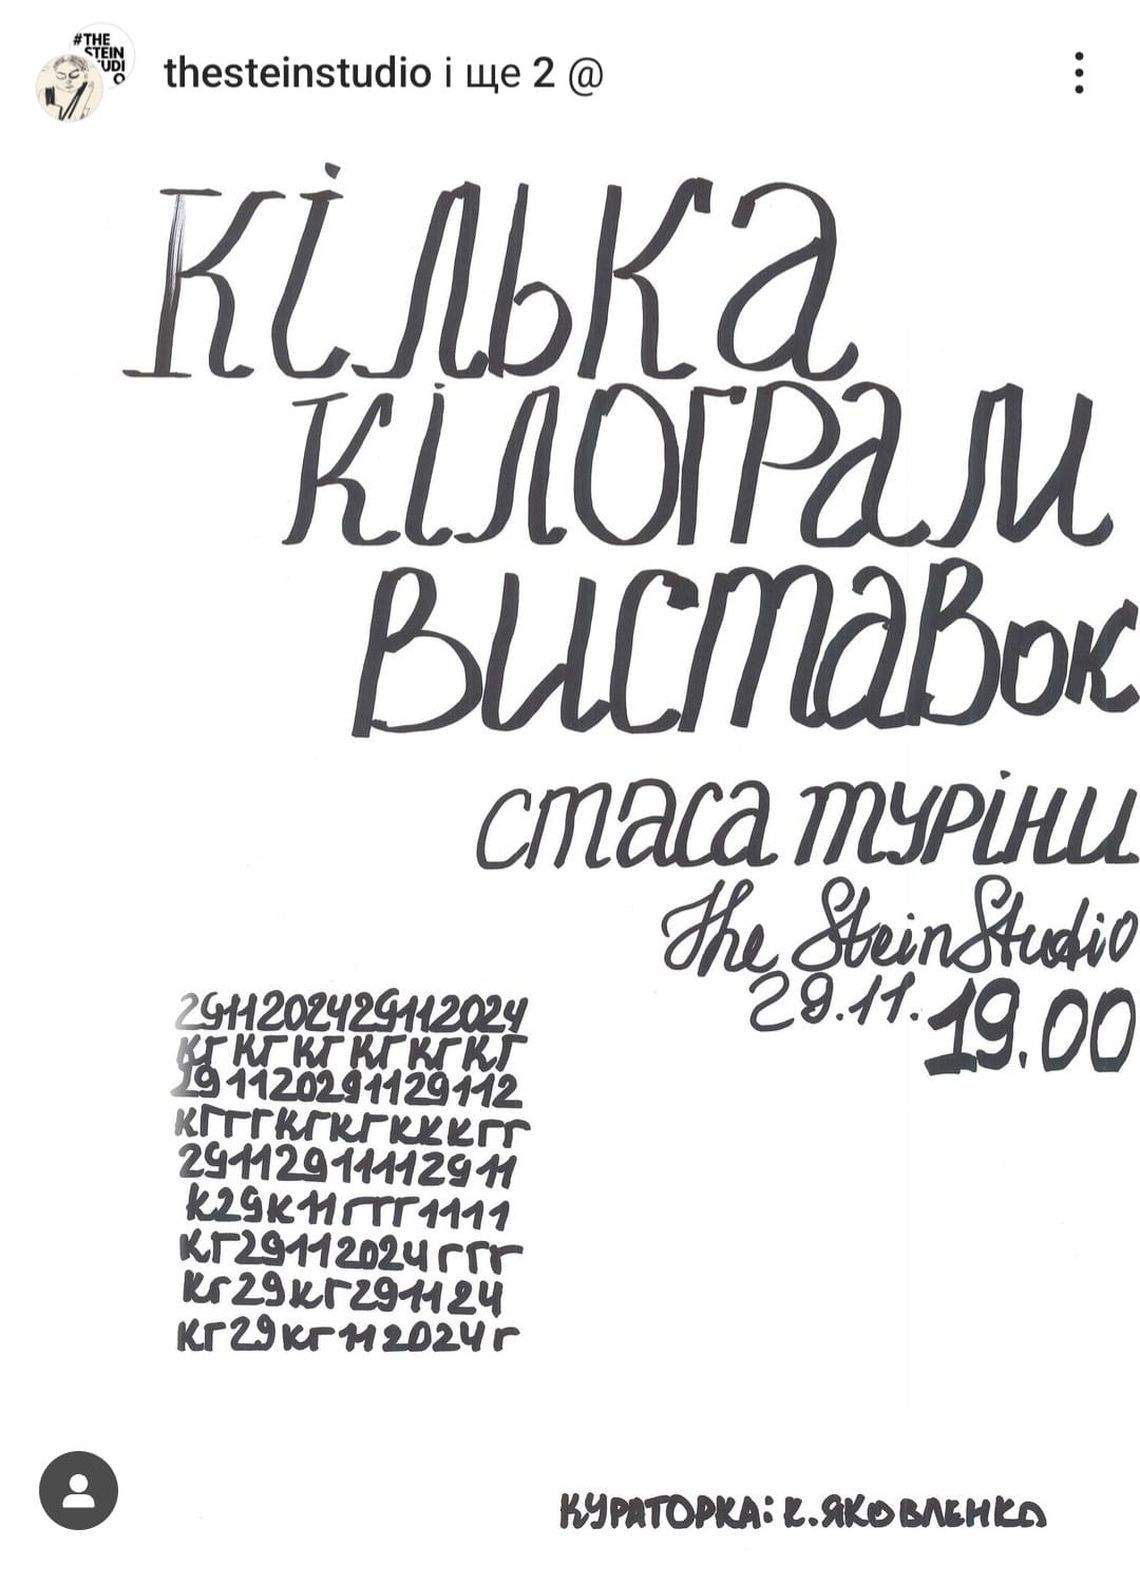 #THE
STEIN
UDI
O
thesteinstudio і ще 2 @
кілька
кілограм
виставок
стаса туріни
The Stein Studio
29.11. 19.00
2911202429112024
кг кг кг кг кг кг
29112029112 9112
кгггкгкгкккгг
2911291111 2911
к29к11ггг1111
кг29112024ггг
кг29кг291124
кг29кг112024г
КУРАТОРКА: К. ЯКОВЛЕНКО